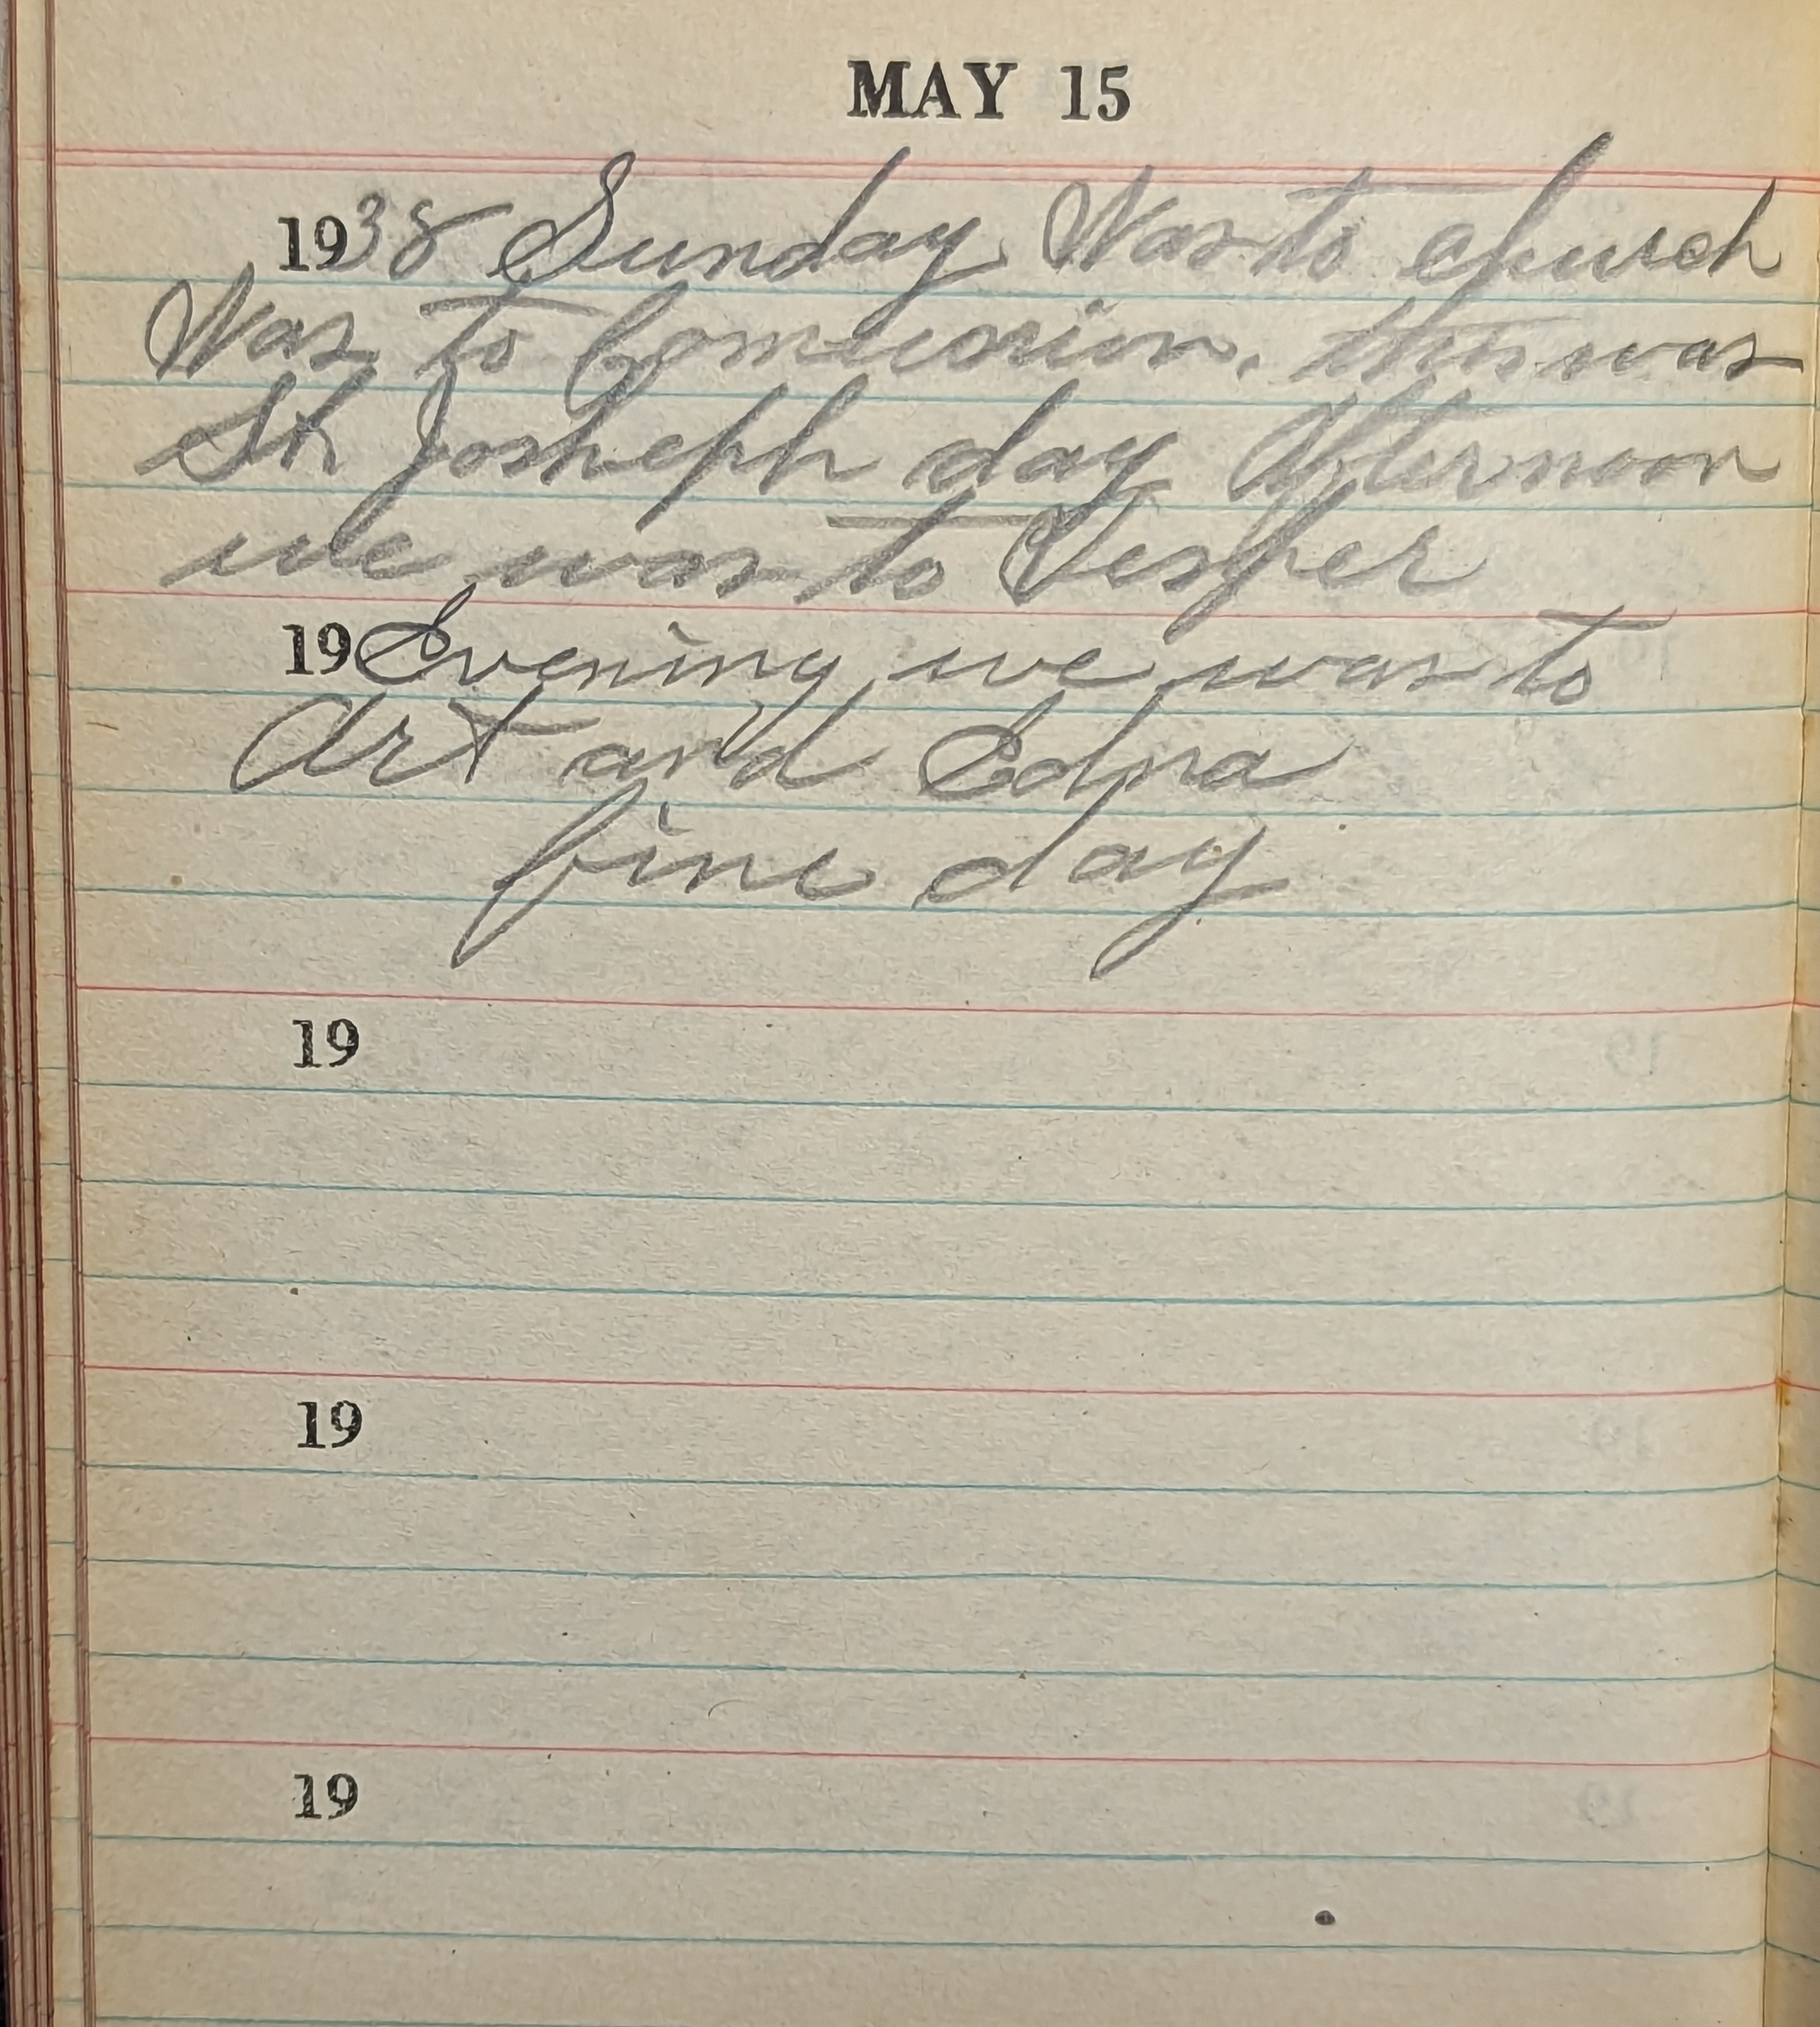 MAY 15
1938 Sunday Was to church
Was to Comunion. this was
St Josheph day Afternoon
we was to Vesper
19 Evening we was to
Art and Edna
fine day
19
19
19